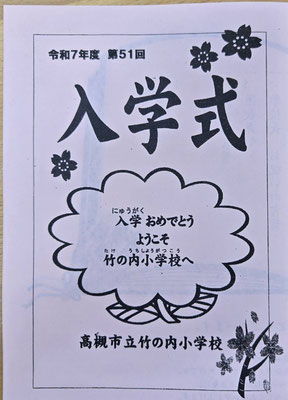 令和7年度 第51回
入学式
にゅうがく
入学 おめでとう
ようこそ
たけ うちしょうがっこう
竹の内小学校へ
高槻市立竹の内小学校